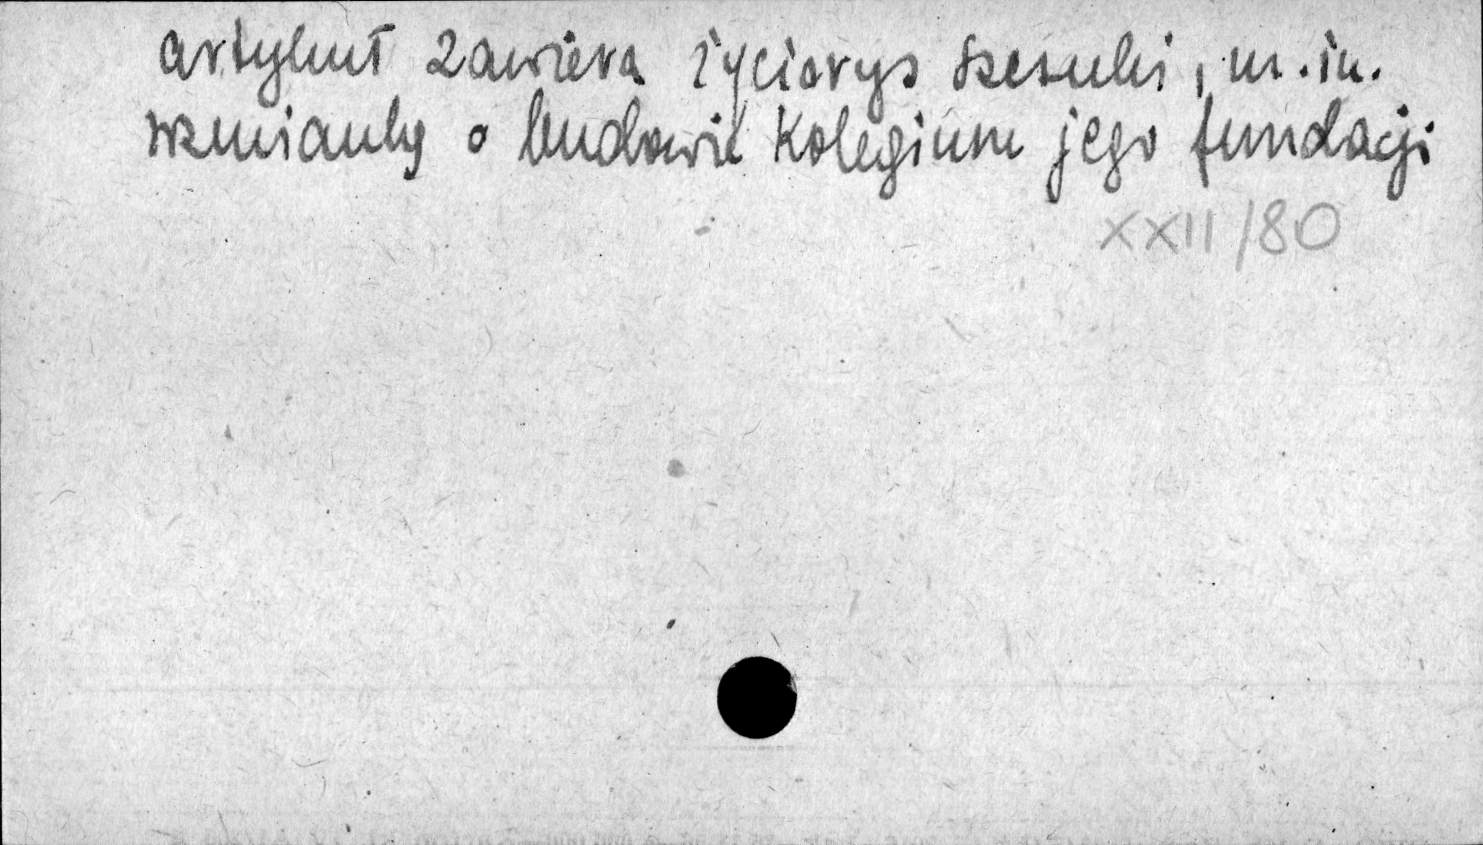 artykuł zawiera życiorys Szeszuki, m.in.
wzmianky o budowie Kolegium jego fundacji
XXII/80